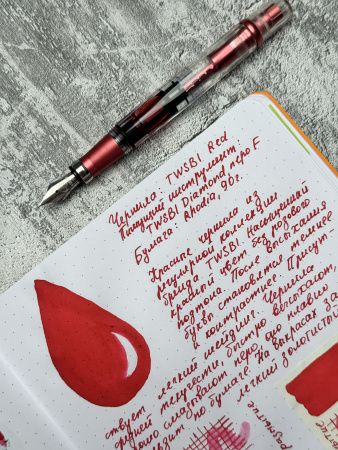 Чернила: TWSBI Red
Пишущий инструмент:
TWSBI Diamond перо F
Бумага: Rhodia, 90г.
Красные чернила из
регулярной коллекции
бренда TWSBI. Насыщенный
красный цвет без розового
подтона. После высыхания
буквы становятся темнее
и контрастнее. Присут-
ствует легкий шейдинг. Чернила
средней текучести, быстро высыхают,
перо, оно плавно
по бумаге. На выкрасах за
легкий золотистый